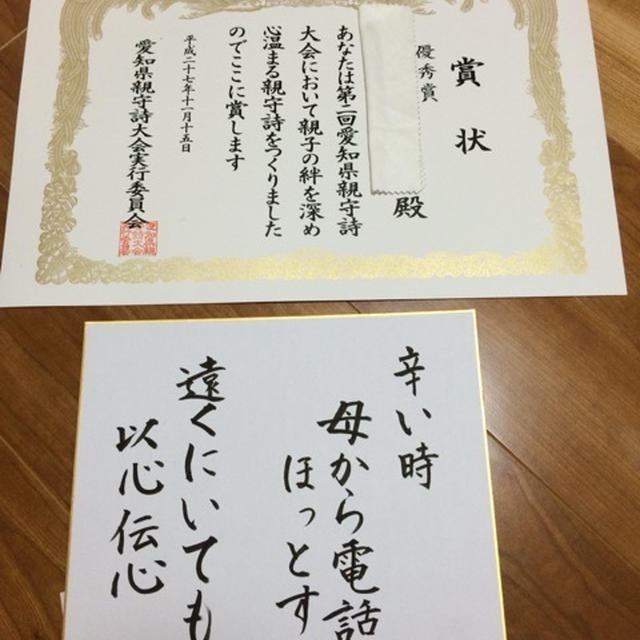 賞状
優秀賞
殿
あなたは第二回愛知県親守詩
大会において親子の絆を深め
心温まる親守詩をつくりました
のでここに賞します
平成二十七年十一月十五日
愛知県親守詩大会実行委員会
辛い時
母から電話
ほっとす
遠くにいても
以心伝心